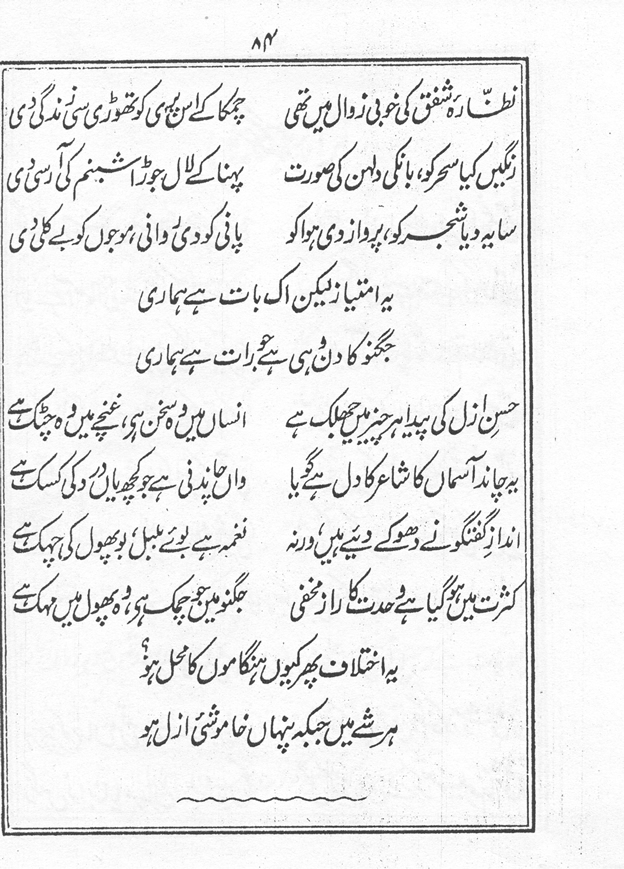 ۸۴
نظّارۂ شفق کی خوبی زوال میں تھی چمکا کے اس پری کو تھوڑی سی زندگی دی
رنگیں کیا سحر کو، بانکی دلہن کی صورت پہنا کے لال جوڑا شبنم کی آرسی دی
سایہ دیا شجر کو، پرواز دی ہوا کو پانی کو دی روانی، موجوں کو بے کلی دی
یہ امتیاز لیکن اک بات ہے ہماری
جگنو کا دن وہی ہے جو رات ہے ہماری
حسنِ ازل کی پیدا ہر چیز میں جھلک ہے انساں میں وہ سخن ہے، غنچے میں وہ چٹک ہے
یہ چاند آسماں کا شاعر کا دل ہے گویا واں چاندنی ہے جو کچھ یاں درد کی کسک ہے
اندازِ گفتگو نے دھوکے دیئے ہیں، ورنہ نغمہ ہے بوئے بلبل، بو پھول کی چہک ہے
کثرت میں ہو گیا ہے وحدت کا راز مخفی جگنو میں جو چمک ہے، وہ پھول میں مہک ہے
یہ اختلاف پھر کیوں ہنگاموں کا محل ہو؟
ہر شے میں جبکہ پنہاں خاموشئ ازل ہو